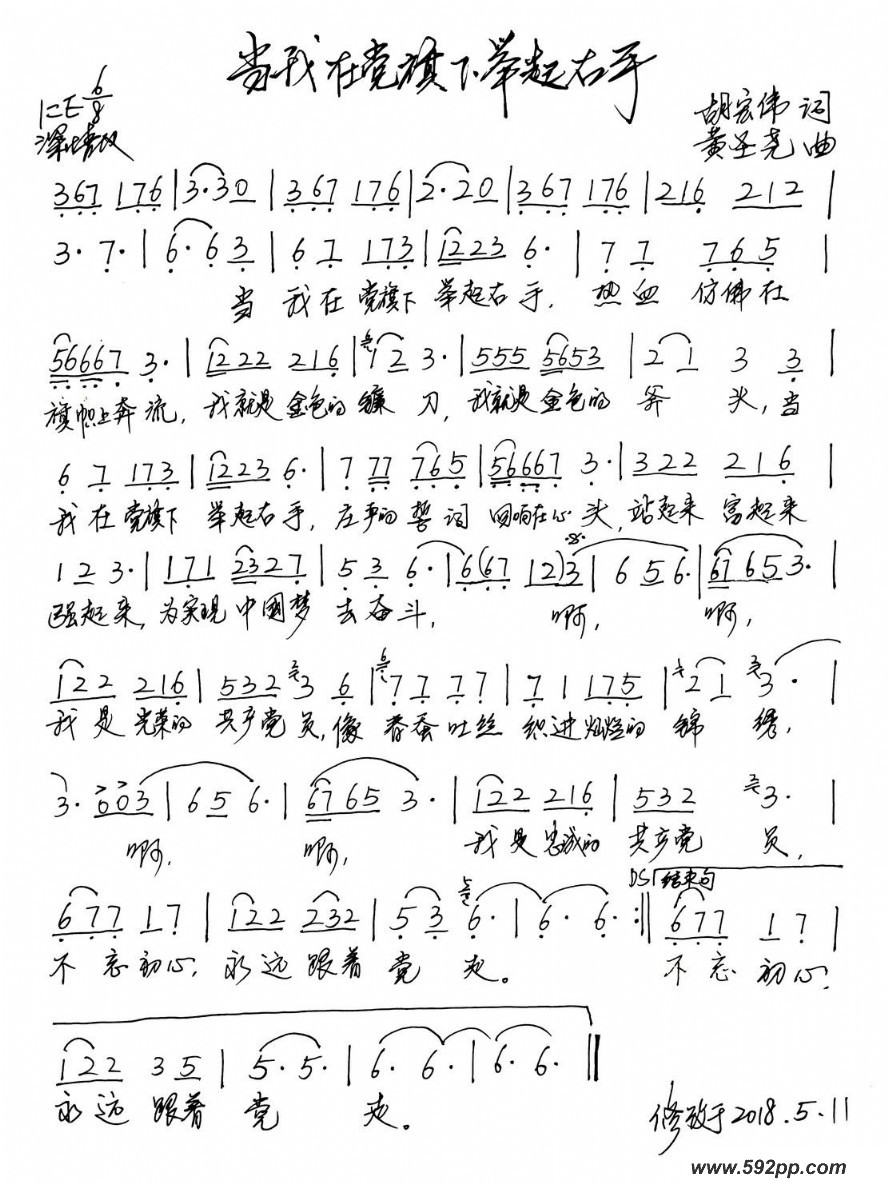 当我在党旗下举起右手
1=E 6/8
胡宏伟 词
深情地
黄圣尧 曲
367 176 | 3·30 | 367 176 | 2·20 | 367 176 | 216 212 |
3· 7· | 6· 63 | 6 7 173 | 1223 6· | 7 7 765 |
当 我在党旗下 举起右手, 热血 仿佛在
56667 3· | 1222 216 | 12 3· | 555 5653 | 2 1 3 3 |
旗帜上奔流, 我就是金色的镰刀, 我就是金色的斧头, 当
6 7 173 | 1223 6· | 7 77 765 | 56667 3· | 322 216 |
我在党旗下 举起右手, 庄严的誓词 回响在心头, 站起来 富起来
12 3· | 171 2327 | 5 3 6· | 6(67 12)3 | 6 56· | 67653· |
强起来, 为实现中国梦 去奋斗, 啊, 啊,
122 216 | 532 3 6 | 77 77 | 71 175 | 21 3· |
我是光荣的 共产党员, 像春蚕吐丝 织进灿烂的锦绣,
3· 003 | 6 5 6· | 6765 3· | 122 216 | 532 3· |
啊, 啊, 我是忠诚的 共产党员,
DS 结束句
677 17 | 122 232 | 5 3 6· | 6· 6· :‖ 677 17 |
不忘初心, 永远跟着党走。 不忘初心,
122 35 | 5· 5· | 6· 6· | 6· 6· ‖
永远 跟着 党 走。
修改于2018.5.11
www.592pp.com